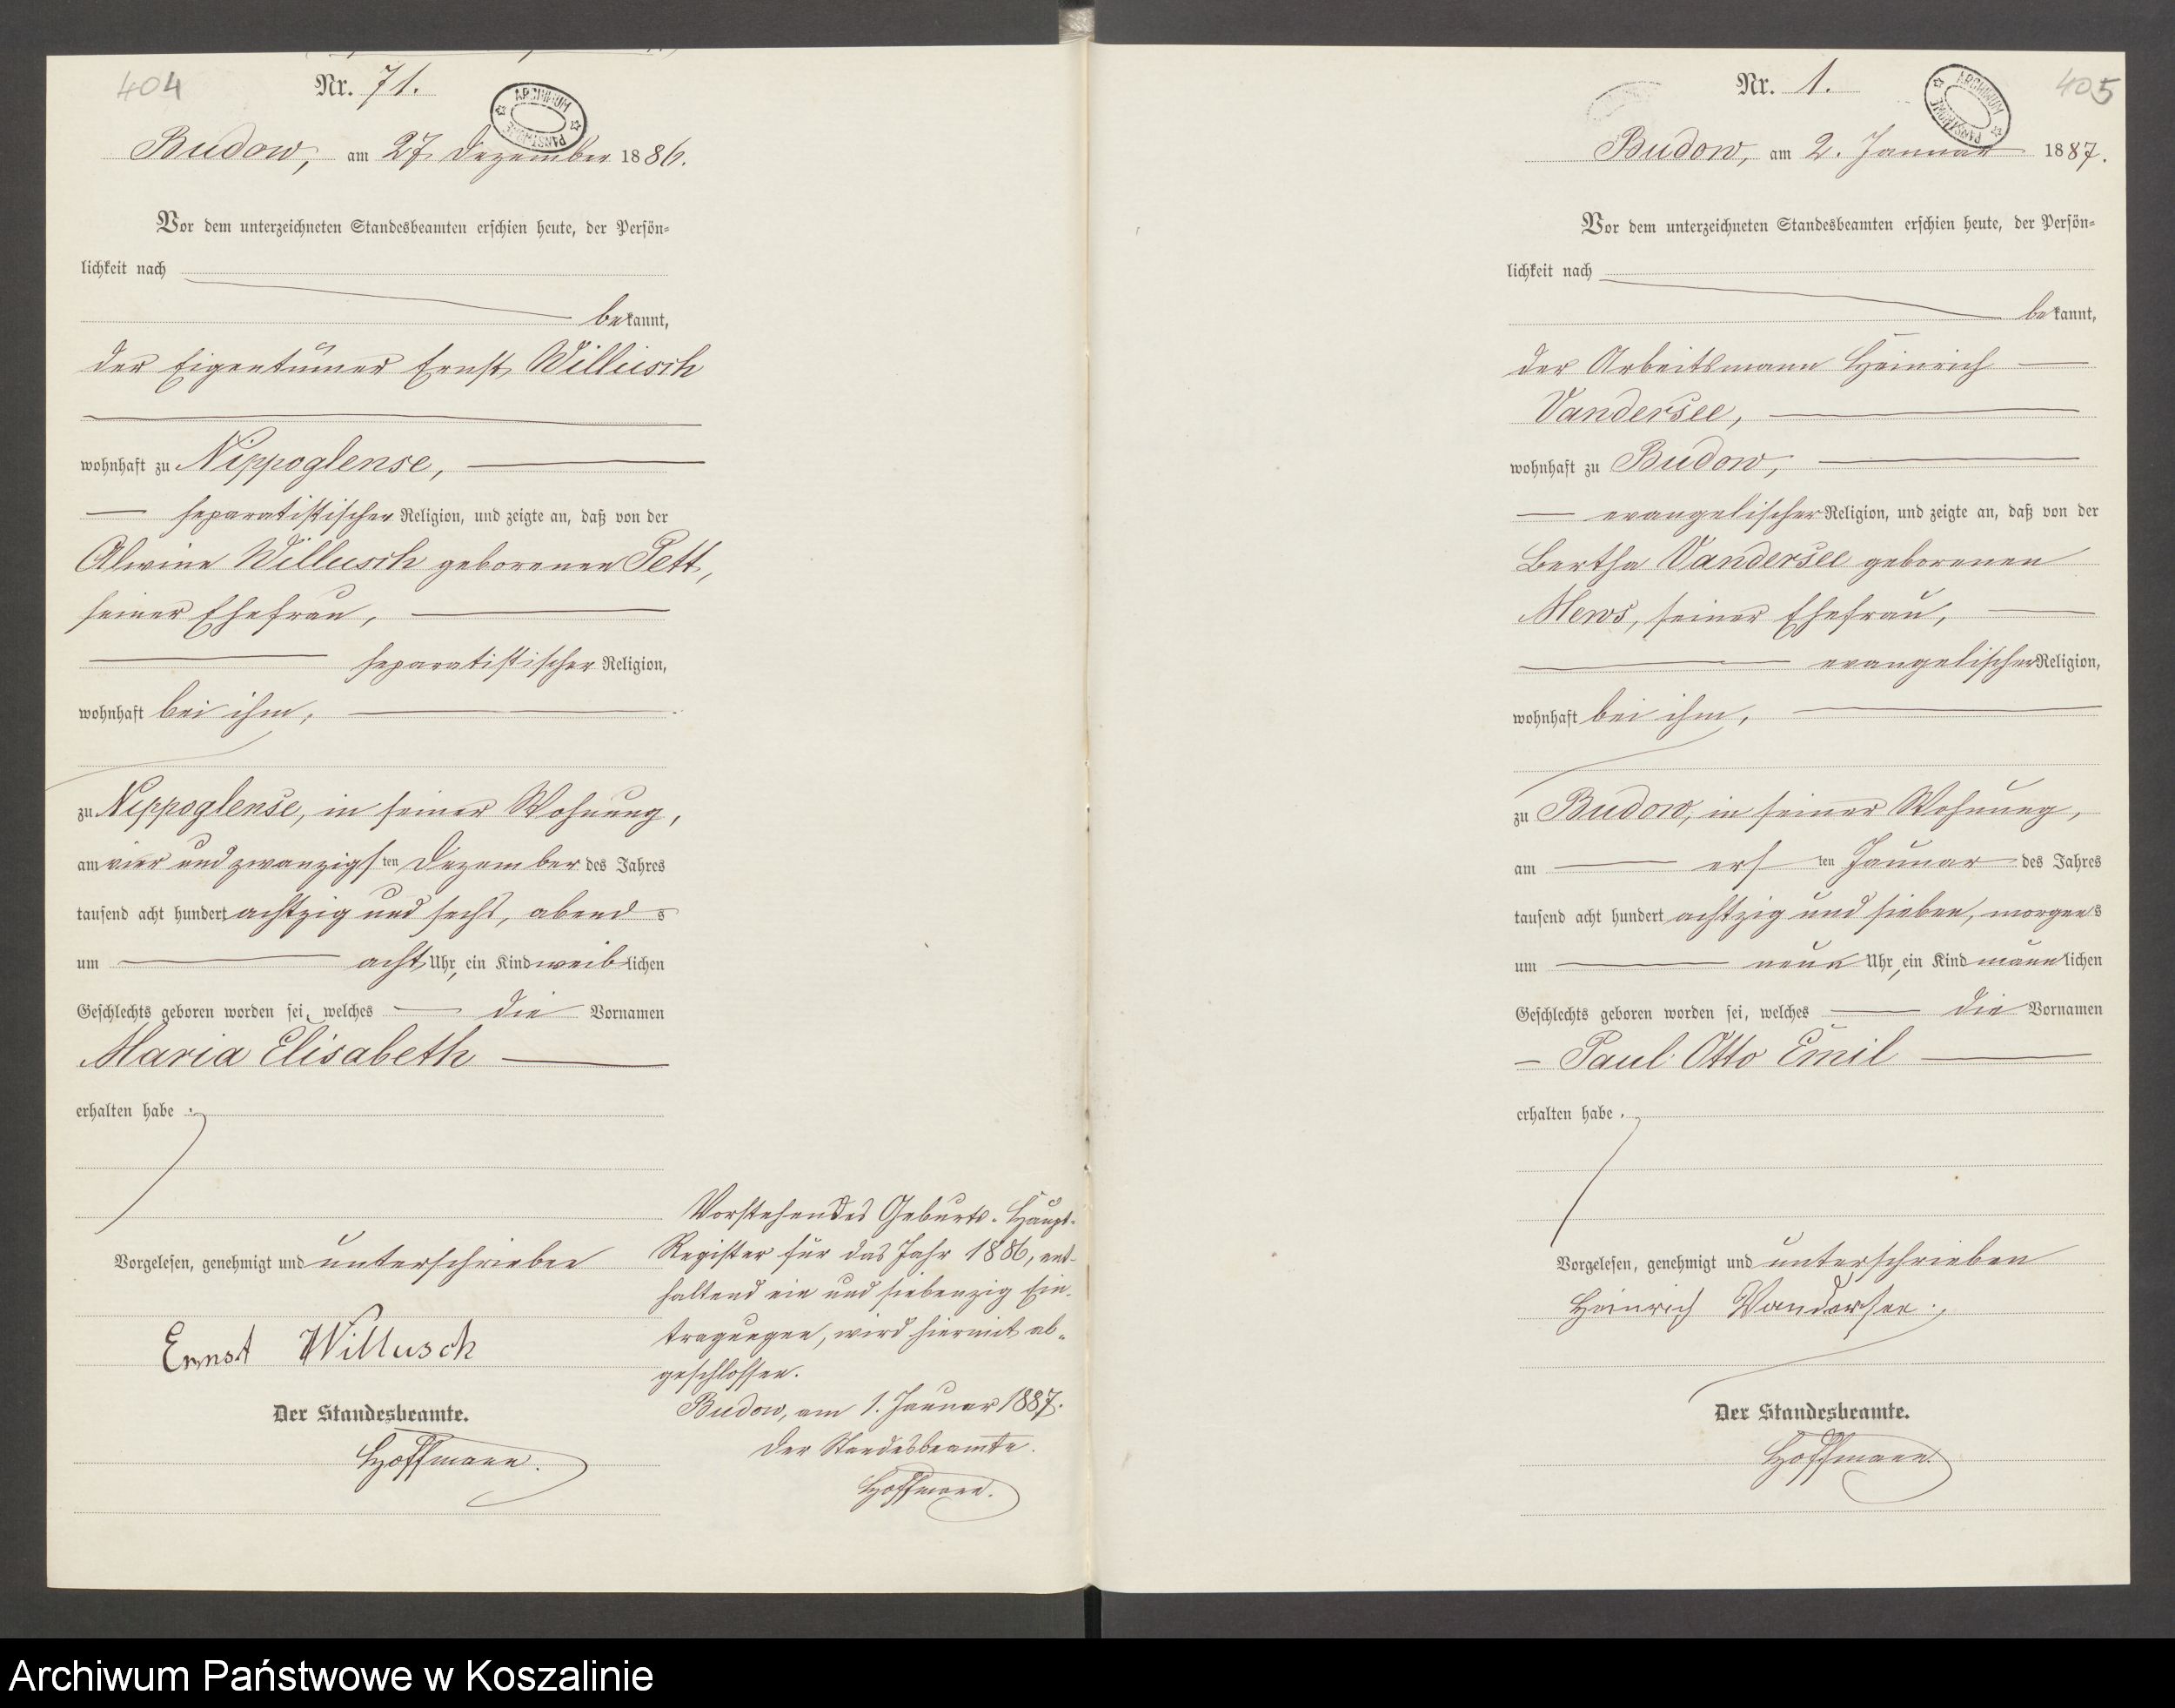 404
Nr. 71.
ARCHIWUM PAŃSTWOWE
Budow, am 27. Dezember 1886.
Vor dem unterzeichneten Standesbeamten erschien heute, der Persön-
lichkeit nach
bekannt,
der Eigentümer Ernst Willusch
wohnhaft zu Nippoglense,
separatistischer Religion, und zeigte an, daß von der
Alwine Willusch geborenen Pett,
seiner Ehefrau,
separatistischer Religion,
wohnhaft bei ihm,
zu Nippoglense, in seiner Wohnung,
am vier und zwanzigsten Dezember des Jahres
tausend acht hundert achtzig und sechs, abends
um acht Uhr, ein Kind weiblichen
Geschlechts geboren worden sei, welches die Vornamen
Maria Elisabeth
erhalten habe.
Vorgelesen, genehmigt und unterschrieben
Ernst Willusch
Der Standesbeamte.
Hoffmann.
Vorstehendes Geburts-Haupt-
Register für das Jahr 1886, ent-
haltend ein und siebenzig Ein-
tragungen, wird hiermit ab-
geschlossen.
Budow, am 1. Januar 1887.
Der Standesbeamte.
Hoffmann.
405
Nr. 1.
ARCHIWUM PAŃSTWOWE
Budow, am 2. Januar 1887.
Vor dem unterzeichneten Standesbeamten erschien heute, der Persön-
lichkeit nach
bekannt,
der Arbeitsmann Heinrich
Vandersee,
wohnhaft zu Budow,
evangelischer Religion, und zeigte an, daß von der
Bertha Vandersee geborenen
Mews, seiner Ehefrau,
evangelischer Religion,
wohnhaft bei ihm,
zu Budow, in seiner Wohnung,
am ersten Januar des Jahres
tausend acht hundert achtzig und sieben, morgens
um neun Uhr, ein Kind männlichen
Geschlechts geboren worden sei, welches die Vornamen
Paul Otto Emil
erhalten habe.
Vorgelesen, genehmigt und unterschrieben
Heinrich Vandersee.
Der Standesbeamte.
Hoffmann.
Archiwum Państwowe w Koszalinie